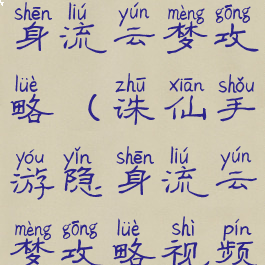 shēn liú yún mèng gōng
身流云梦攻
lüè zhū xiān shǒu
略(诛仙手
yóu yǐn shēn liú yún
游隐身流云
mèng gōng lüè shì pín
梦攻略视频